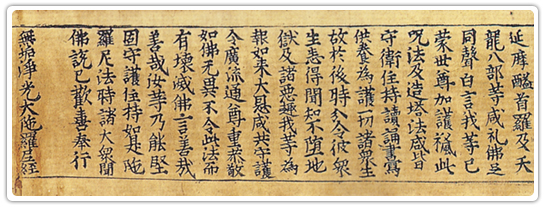 延摩醯首羅及天
龍八部等咸礼佛足
同聲白言我等已
蒙世尊加護授此
呪法及造塔法咸皆
守衛住持讀誦書寫
供養為護一切諸衆生
故於後時分令彼衆
生悉得聞知不墮地
獄及諸惡趣我等為
報如来大恩咸共守護
令廣流通尊重恭敬
如佛无異不令此法而
有壞滅佛言善哉
善哉汝等乃能堅
固守護住持如是陁
羅尼法時諸大衆聞
佛說已歡喜奉行
無垢淨光大陁羅尼經